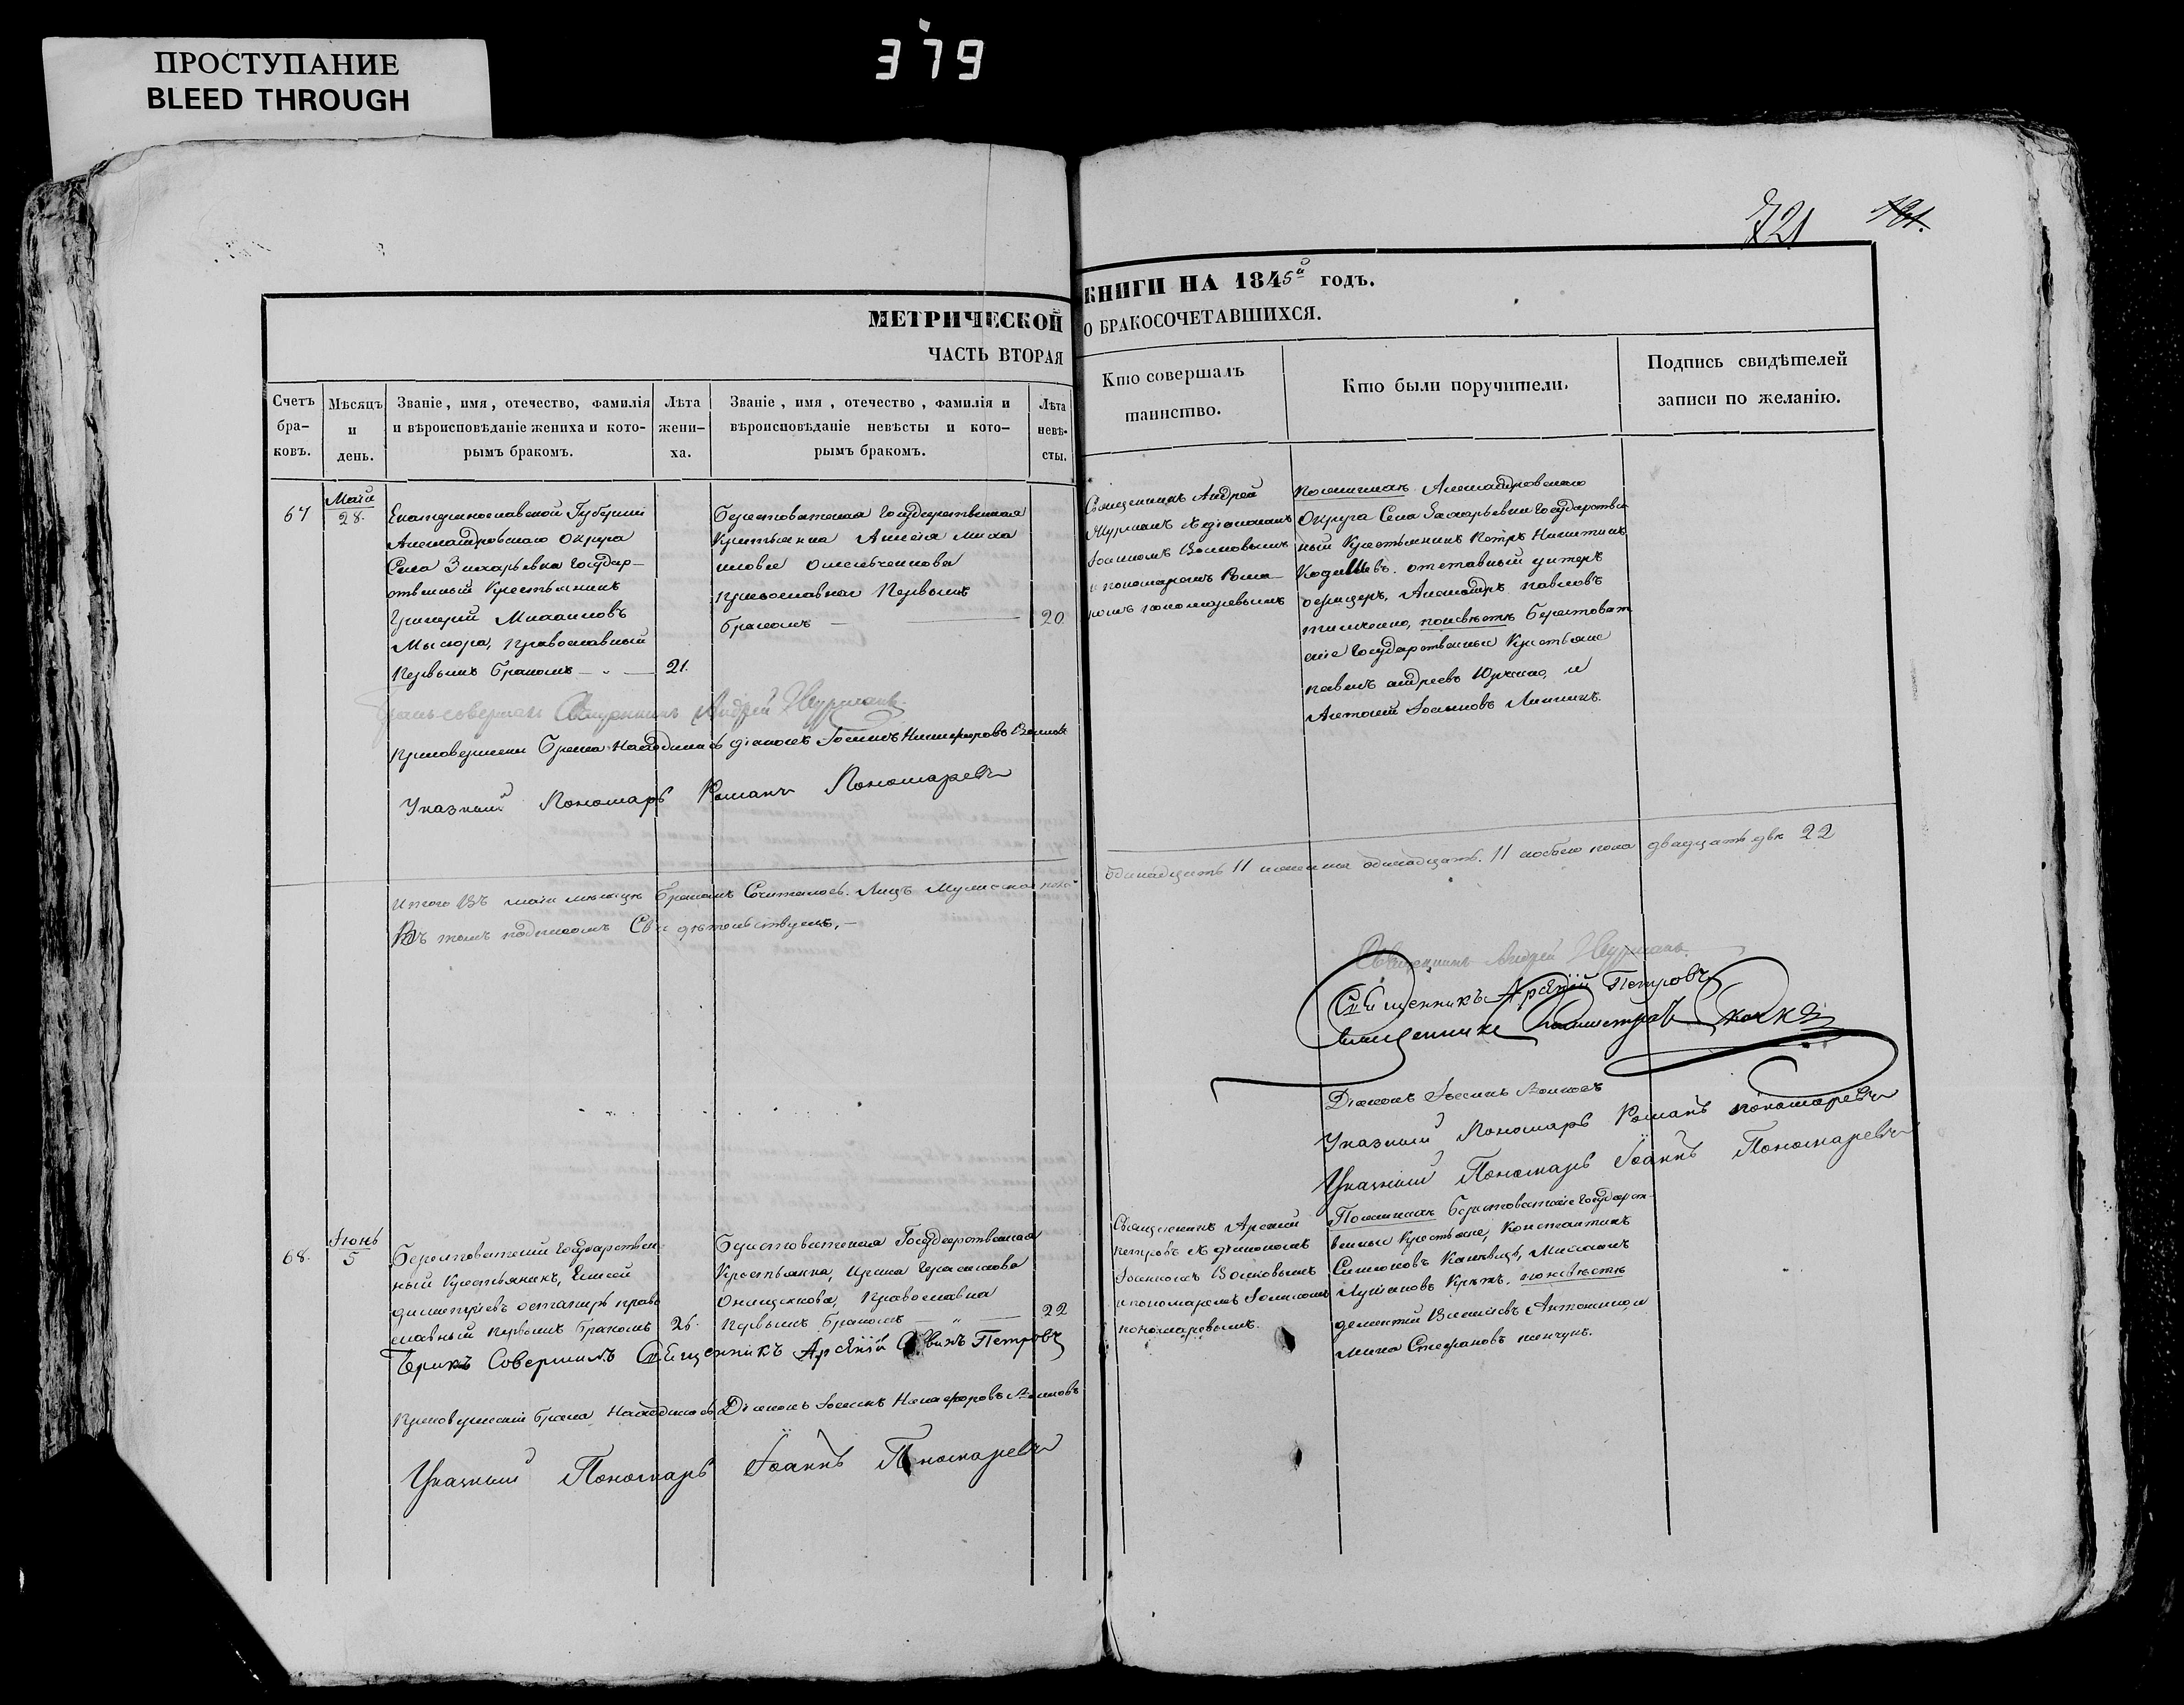 ПРОСТУПАНИЕ
BLEED THROUGH
379
721
181.
МЕТРИЧЕСКОЙ
КНИГИ НА 1845й годъ.
ЧАСТЬ ВТОРАЯ
О БРАКОСОЧЕТАВШИХСЯ.
Счетъ бра-ковъ.
Мѣсяцъ и день.
Званіе, имя, отечество, фамилія
и вѣроисповѣданіе жениха и кото-
рымъ бракомъ.
Лѣта жени-ха.
Званіе, имя, отечество, фамилія и
вѣроисповѣданіе невѣсты и кото-
рымъ бракомъ.
Лѣта невѣ-сты.
Кто совершалъ
таинство.
Кто были поручители.
Подпись свидѣтелей
записи по желанію.
67
Маія
28.
Екатеринославской Губерніи
Александровского Округа
Села Захарьевки Государ-
ственный Крестьянинъ
Григорій Михаиловъ
православный
Первымъ бракомъ
21.
Берестоватская Государственная
Крестьянка
православная Первымъ
бракомъ
20
Священникъ Андрей
съ діакономъ
Іоанномъ Волковымъ
и пономаремъ Рома-
номъ пономаревымъ
По женихѣ Александровского
Округа Села Захарьевки Государствен
ный Крестьянинъ Петръ Никитинъ
отставный унтеръ
офицеръ, Александръ Павловъ
по невѣстѣ Берестоват
скіе Государственные Крестьяне
Павелъ Андреевъ и
Іоанновъ
Бракъ совершалъ Священникъ Андрей
При совершеніи Брака Находился діаконъ Іоаннъ Никифоровъ Волковъ
Указный Пономарь Романъ Пономаревъ
Итого Въ маіи мѣсяцѣ Бракомъ Сочеталось. Лицъ Мужескаго пола
одинадцать 11 женска одинадцать. 11 обоего пола двадцать два 22
Въ томъ подписомъ Свидѣтельствуемъ,
Священникъ Андрей
Священникъ Арсеній Петровъ
Священникъ
Діаконъ Іоаннъ Волковъ
Указный Пономарь Романъ пономаревъ
Указный Пономарь Іоаннъ Пономаревъ
68.
Іюнь
5
Берестоватскій Государствен
ный Крестьянинъ, Елисей
Димитріевъ право
славный первымъ бракомъ
26.
Берестоватская Государственная
Крестьянка, Ирина Герасимова
Онищенкова, Православна
Первымъ бракомъ
22
Священникъ Арсеній
Петровъ съ діакономъ
Іоанномъ Волковымъ
и пономаремъ Іоанномъ
пономаревымъ.
По женихѣ Берестоватскіе Государст
венные Крестьяне, Константинъ
Симоновъ Михаилъ
по невѣстѣ
Дементій и
Стефановъ
Бракъ Совершилъ Священникъ Арсеній Петровъ
При совершеніи брака Находился Діаконъ Іоаннъ Никифоровъ Волковъ
Указный Пономарь Іоаннъ Пономаревъ